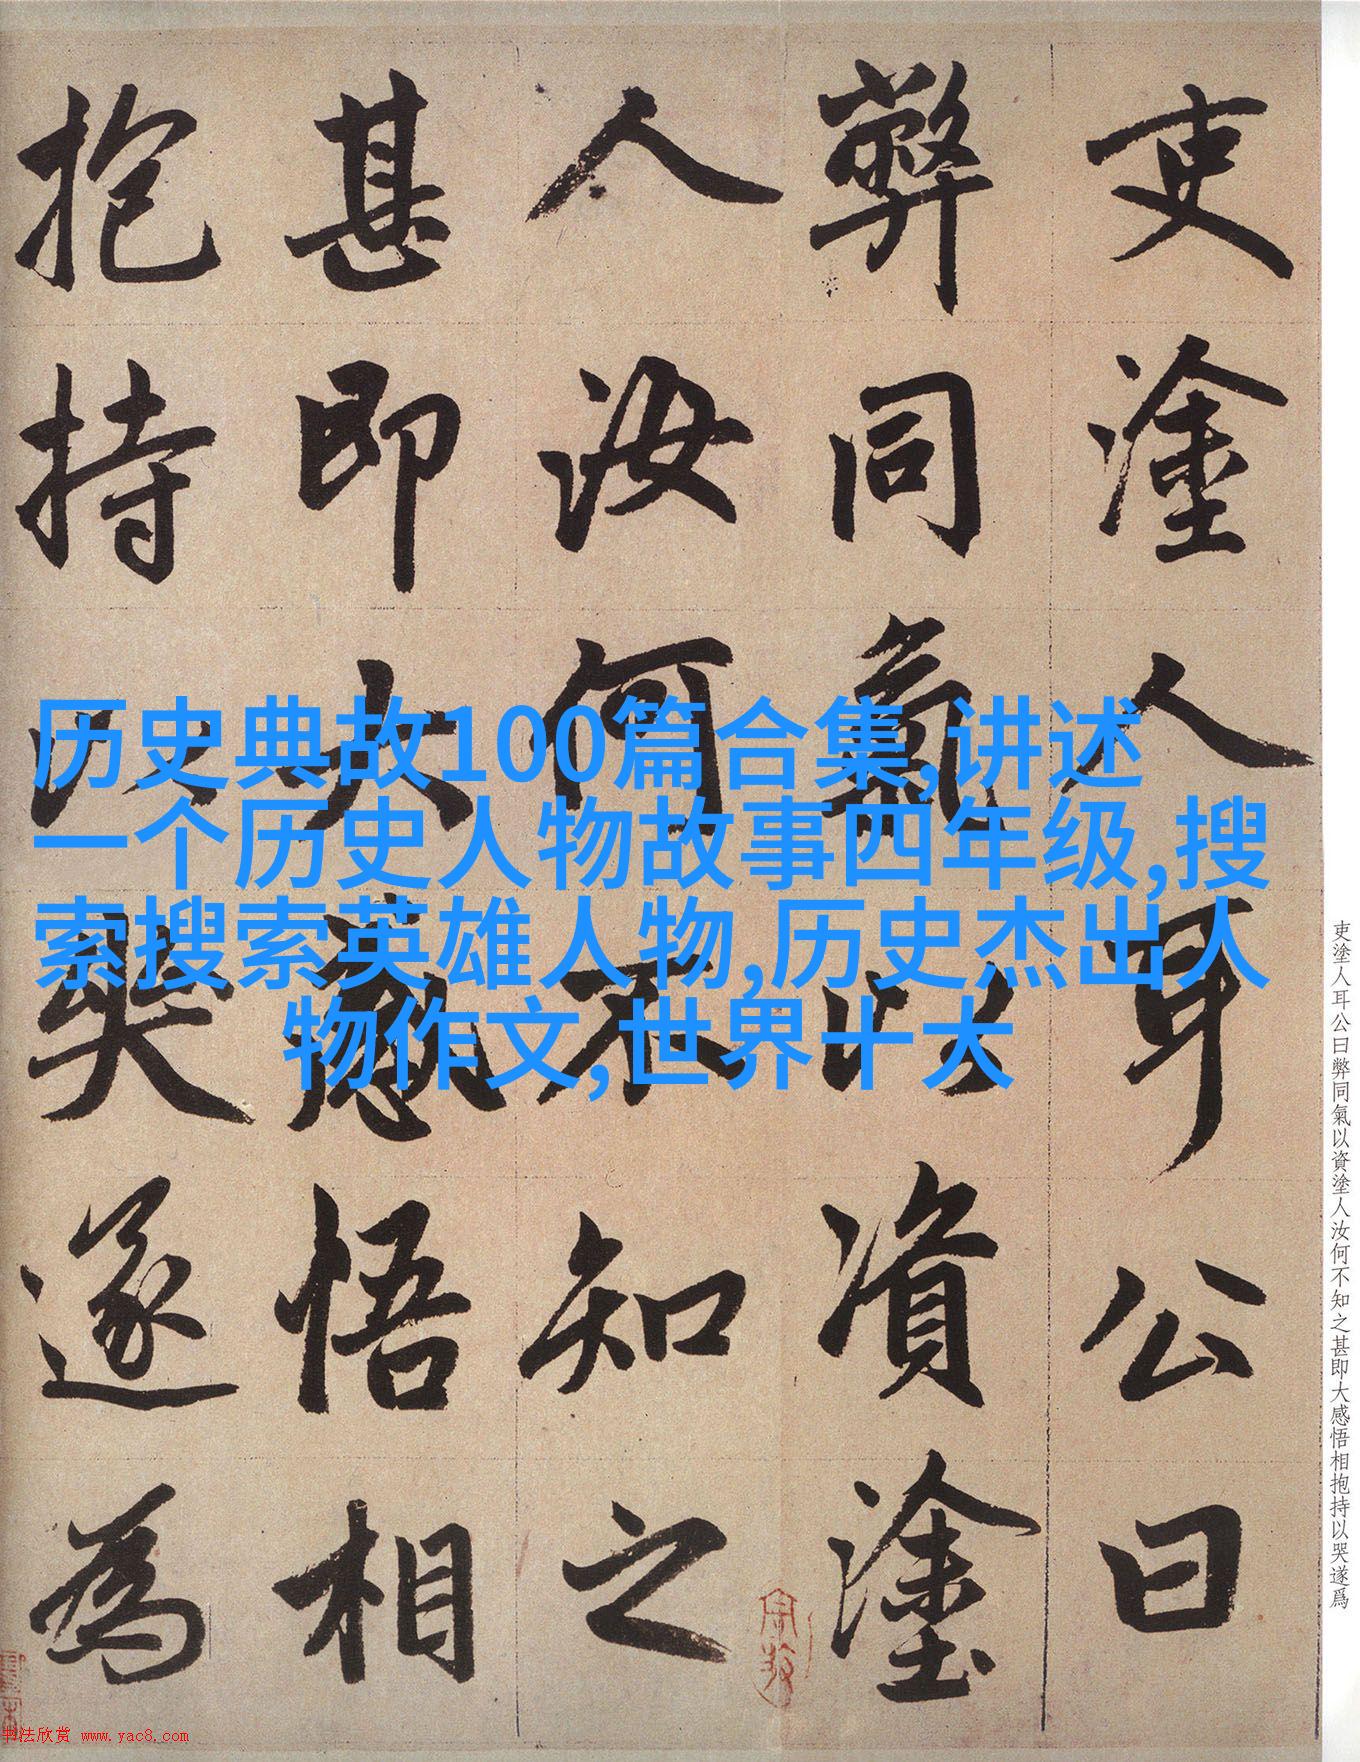 吏塗人耳公曰
弊同氣以資塗
人汝何不知之
甚即大感悟相
抱持以哭遂為
历史典故100篇合集,讲述
一个历史人物故事四年级,搜
索搜索英雄人物,历史杰出人
物作文,世界十大
吏塗人耳公曰弊同氣以資塗人汝何不知之甚即大感悟相抱持以哭遂爲
书法欣赏 www.yac8.com